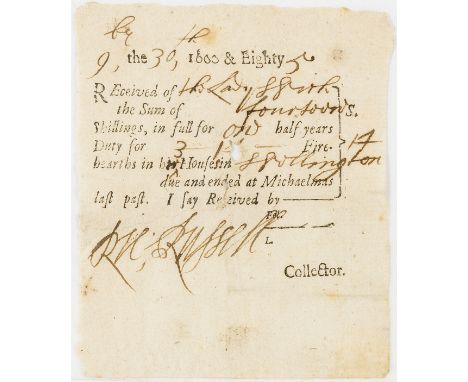 9 br the 30th 1600 & Eighty 5
REceived of the Lady
the Sum of fourteen S.
Shillings, in full for half years
Duty for Fire- 14
hearths in her Houses in
due and ended at Michaelmas
last past. I say Received by
L.
Ric, Russell
Collector.